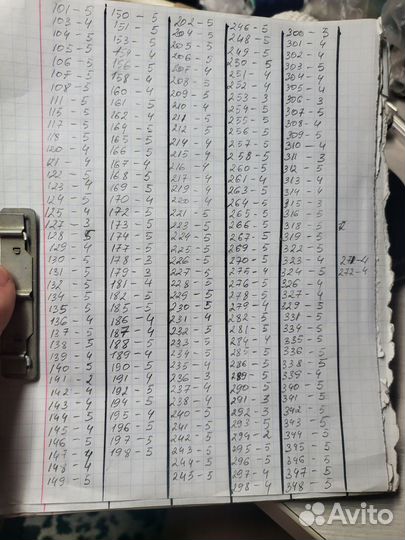 101-5
103-4
104-5
105-5
106-5
107-5
108-5
111-5
115-5
117-5
118-5
120-4
121-4
122-5
123-4
124-5
125-4
127-3
128-5
129-4
130-5
131-5
132-5
134-5
135-5
136-4
137-5
138-5
139-4
140-5
141-2
142-4
143-4
144-5
145-4
146-5
147-4
148-4
149-5
150-5
151-5
153-5
156-5
158-4
160-4
161-5
162-4
164-5
165-5
166-5
167-4
168-5
169-5
170-4
172-5
173-5
174-5
177-5
178-3
179-3
181-4
182-5
185-5
186-4
187-4
188-5
189-4
190-5
191-4
192-5
194-5
195-4
196-5
197-5
198-5
202-5
204-5
205-5
206-5
207-4
208-5
209-5
210-4
211-5
212-5
214-4
215-4
216-4
217-4
219-4
220-4
221-5
223-5
224-5
225-5
226-5
227-5
228-5
229-5
230-5
231-4
232-5
233-5
234-5
235-4
236-3
237-4
238-4
240-5
241-5
242-5
243-5
244-5
245-5
246-5
248-5
249-5
250-5
251-4
252-4
253-3
254-5
255-5
256-5
257-5
258-5
260-5
261-4
263-5
264-5
265-5
266-5
267-5
269-5
270-5
275-4
276-5
278-5
279-4
282-5
281-5
284-4
285-5
286-5
289-5
290-5
291-3
292-3
293-5
294-2
295-5
296-5
297-4
298-4
300-3
301-4
302-4
303-5
304-4
305-4
306-3
307-5
308-4
309-5
310-4
311-3
312-5
313-4
314-4
315-3
316-5
318-5
319-5
322-5
323-4
324-5
326-4
327-4
329-5
331-5
334-5
335-5
336-5
338-5
339-4
340-5
341-5
342-5
343-5
344-5
345-5
346-5
347-5
348-5
271-4
272-4
Avito